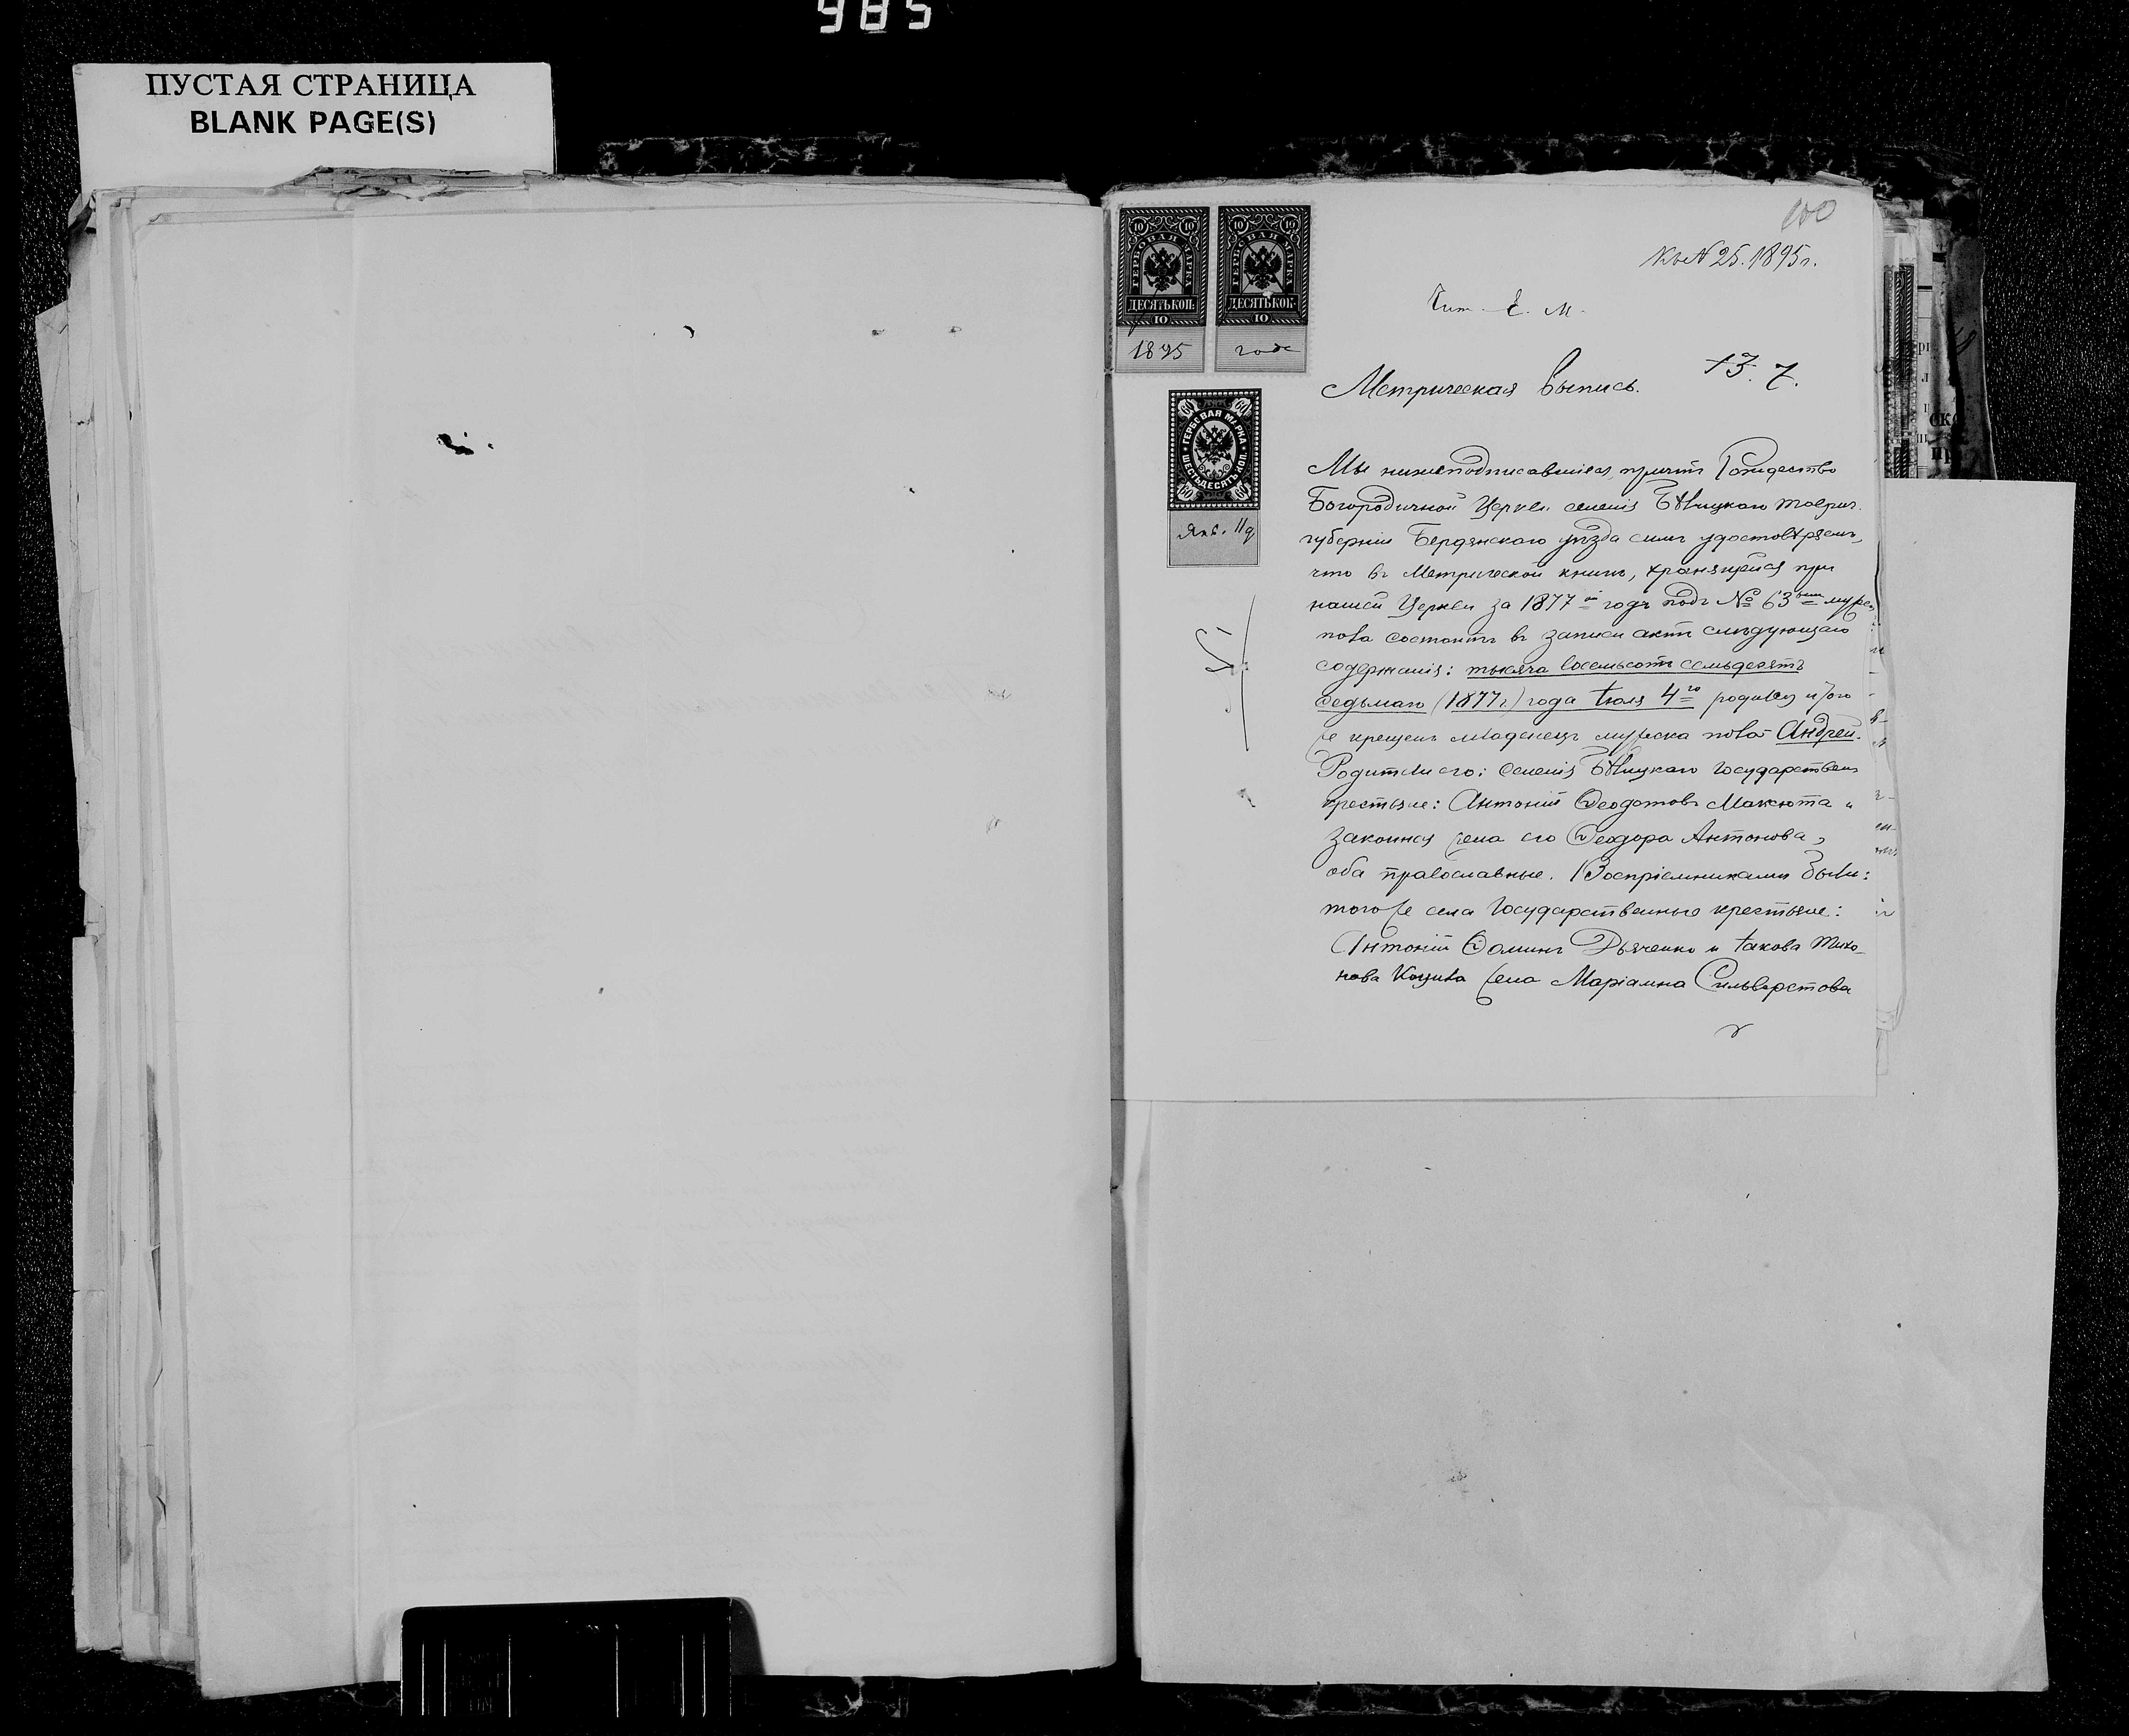 985
ПУСТАЯ СТРАНИЦА
BLANK PAGE(S)
100
Къ № 25. 1895 г.
Чит. Е. М.
10 10
ГЕРБОВАЯ МАРКА
ДЕСЯТЬ КОП.
10
1895
10 10
ГЕРБОВАЯ МАРКА
ДЕСЯТЬ КОП.
10
года
13. 7.
Метрическая выпись.
60 60
ГЕРБОВАЯ МАРКА
ШЕСТЬДЕСЯТЪ КОП.
60 60
Янв. 11 д
Мы нижеподписавшіеся, причтъ Рождество
Богородичной Церкви селенія Бѣлицкаго Таврич.
губерніи Бердянскаго уѣзда симъ удостовѣряемъ,
что въ Метрической книгѣ, хранящейся при
нашей Церкви за 1877-й годъ подъ № 63 муже-
пола состоитъ въ записи актъ слѣдующаго
содержанія: тысяча восемьсотъ семьдесятъ
седьмаго (1877 г.) года Іюля 4го родился и 7ого
же крещенъ младенецъ мужеска пола Андрей.
Родители его: селенія Бѣлицкаго Государствен
крестьяне: Антоній Ѳеодотовъ Максюта и
законная жена его Ѳеодора Антонова,
оба православные. Воспріемниками были:
того же села Государственные крестьяне:
Антоній Ѳоминъ Дьяченко и Іакова Тихо-
нова жена Маріамна Сильверстова